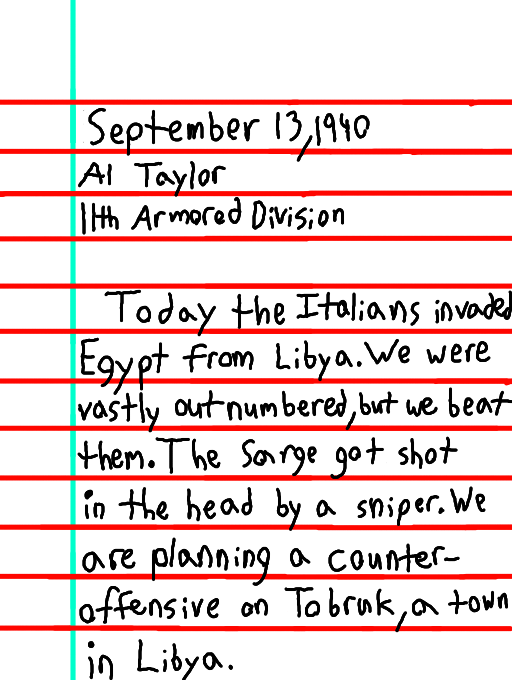 September 13,1940
Al Taylor
11th Armored Division
Today the Italians invaded
Egypt from Libya. We were
vastly outnumbered, but we beat
them. The Sarge got shot
in the head by a sniper. We
are planning a counter-
offensive on Tobruk, a town
in Libya.